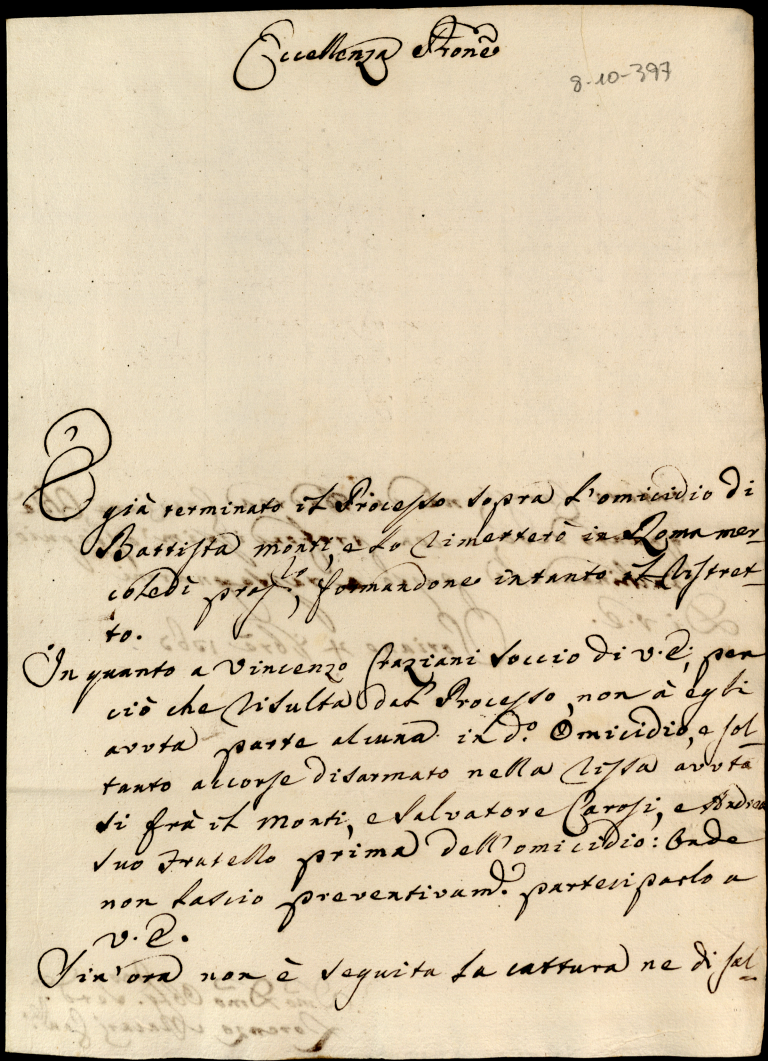 Eccellenza Prone
8-10-397
È già terminato il Processo sopra l'omicidio di
Battista Monti, e lo rimetterò in Roma mer-
coledì pross.o, formandone intanto il ristret-
to.
In quanto a Vincenzo Graziani Soccio di V.E., per
ciò che risulta dal Processo, non à egli
avuta parte alcuna in d.o Omicidio, e sol-
tanto accorse disarmato nella rissa avuta
si frà il Monti, e Salvatore Carosi, e Andrea
suo Fratello prima dell'omicidio: Onde
non lascio preventivam.e parteciparlo a
V.E.
Sin'ora non è seguita la cattura ne di Sal-